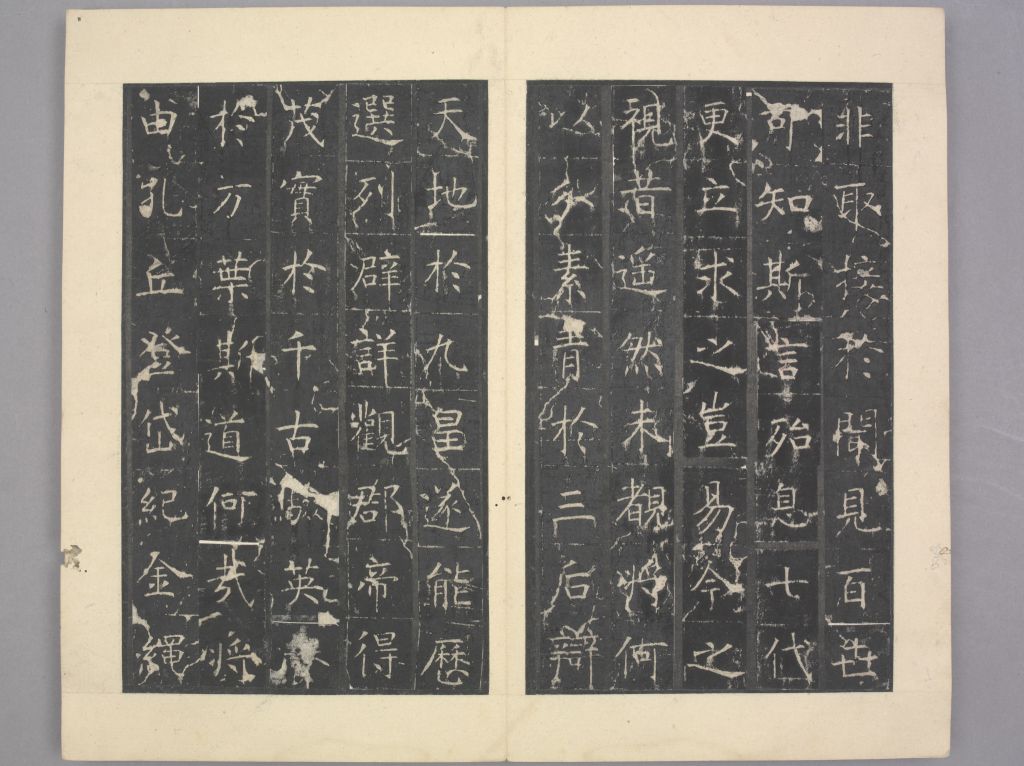 非取接於聞見百世
可知斯言殆息七代
更立求之豈易今之
視昔遥然未覩將何
以分素青於三后辯
天地於九皇遂能歷
選列辟詳觀群帝得
茂實於千古英
於方策斯道何哉將
由孔丘登岱紀金繩